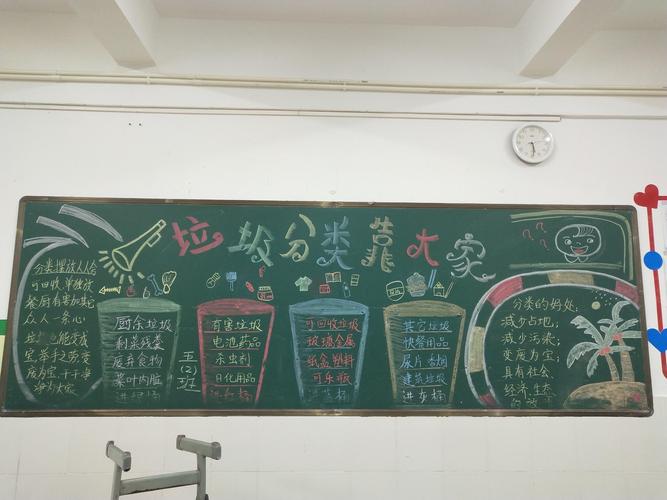 垃圾分类靠大家
分类摆放人人会
可回收,单独放
餐厨有害加其它
众人一条心!
垃圾也能变成
宝,举手之劳变
废为宝,干干净
净为大家
厨余垃圾
剩菜残羹
废弃食物
菜叶内脏
五
(2)
班
有害垃圾
电池药品
杀虫剂
日化用品
进红桶
可回收垃圾
玻璃金属
纸盒塑料
可乐瓶
进蓝桶
其它垃圾
快餐用品
尿片
建筑垃圾
进灰桶
???
分类的好处:
减少占地,
减少污染,
变废为宝,
具有社会,
经济,生态
的效